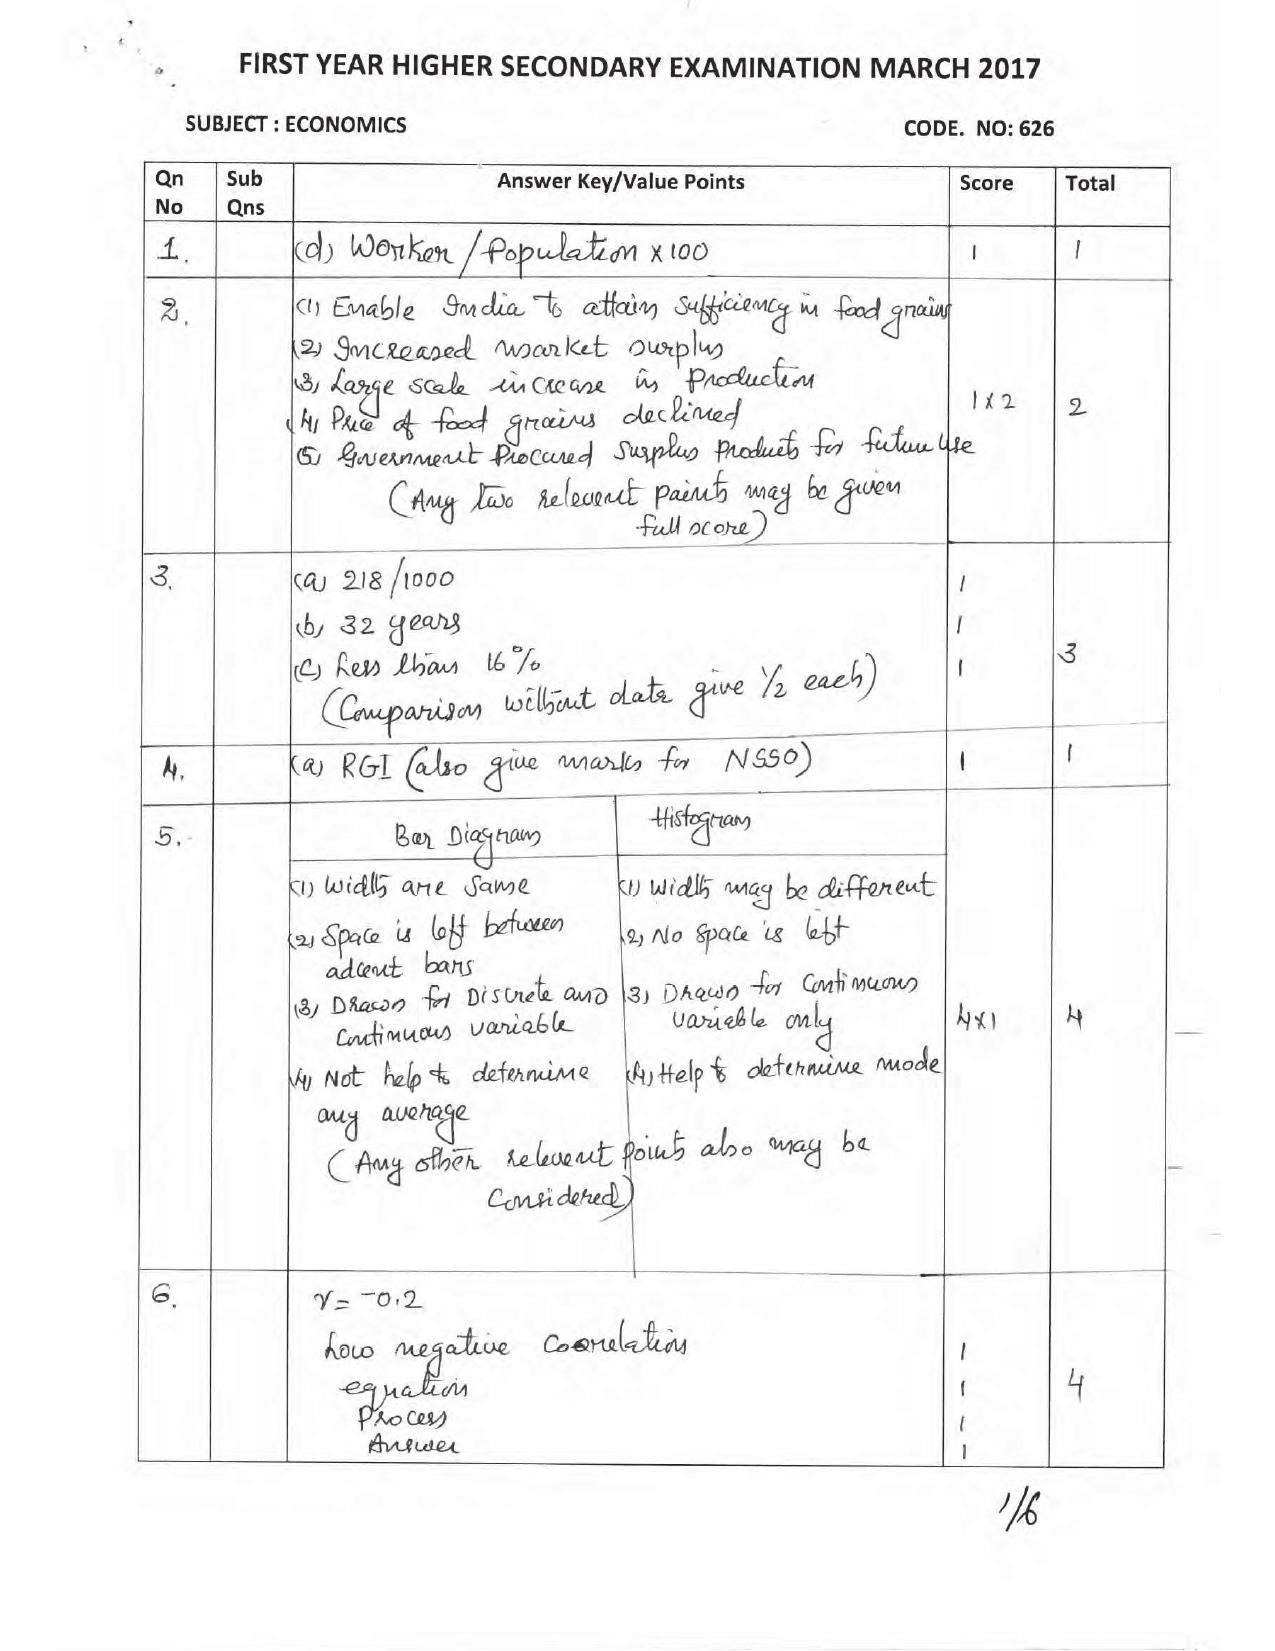 FIRST YEAR HIGHER SECONDARY EXAMINATION MARCH 2017
SUBJECT : ECONOMICS
CODE. NO: 626
Qn No
Sub Qns
Answer Key/Value Points
Score
Total
1.
(d) Worker / Population x 100
1
1
2.
(1) Enable India to attain sufficiency in food grains
(2) Increased market surplus
(3) Large scale increase in Production
(4) Price of food grains declined
(5) Government Procured Surplus Products for future Use
(Any two relevent points may be given
full score)
1 x 2
2
3.
(a) 218/1000
1
(b) 32 years
1
(c) Less than 16%
1
(Comparison without data give 1/2 each)
3
4.
(a) RGI (also give marks for NSSO)
1
1
5.
Bar Diagram
Histogram
(1) Width are same
(1) Width may be different
(2) Space is left between
adcent bars
(2) No space is left
(3) Drawn for Discrete and
Continuous variable
(3) Drawn for Continuous
variable only
(4) Not help to determine
any average
(4) Help to determine mode
(Any other relevent points also may be
Considered)
4x1
4
6.
r = -0.2
Low negative Coorelation
1
equation
1
Process
1
Answer
1
4
1/6